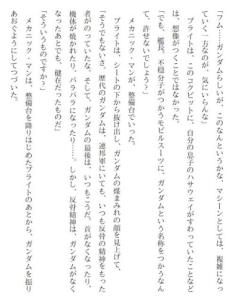 「フム……ガンダムらしいが、このなんというかな、マシーンとしては、複雑になっ
ていく一方なのが、気にいらんな」
ブライトは、このコクピットに、自分の息子のハサウェイがすわっていたことなど
は、想像がつくことではなかった。
「でも、艦長、不穏分子がつかうモビルスーツに、ガンダムという名称をつかうなん
て、許せないでしょう？」
メカニック・マンである。
「そうでもないさ。歴代のガンダムは、連邦軍にいても、いつも反骨の精神をもった
者がのっていたな。そして、ガンダムの最後は、いつもこうだ。首がなくなったり、
機体が焼かれたり、バラバラになったり……。しかし、反骨精神は、ガンダムがなく
なったあとでも、健在だったものだ」
「そういうものですか？」
メカニック・マンは、整備台を降りはじめたブライトのあとから、ガンダムを振り
あおぐようにしてつづいた。